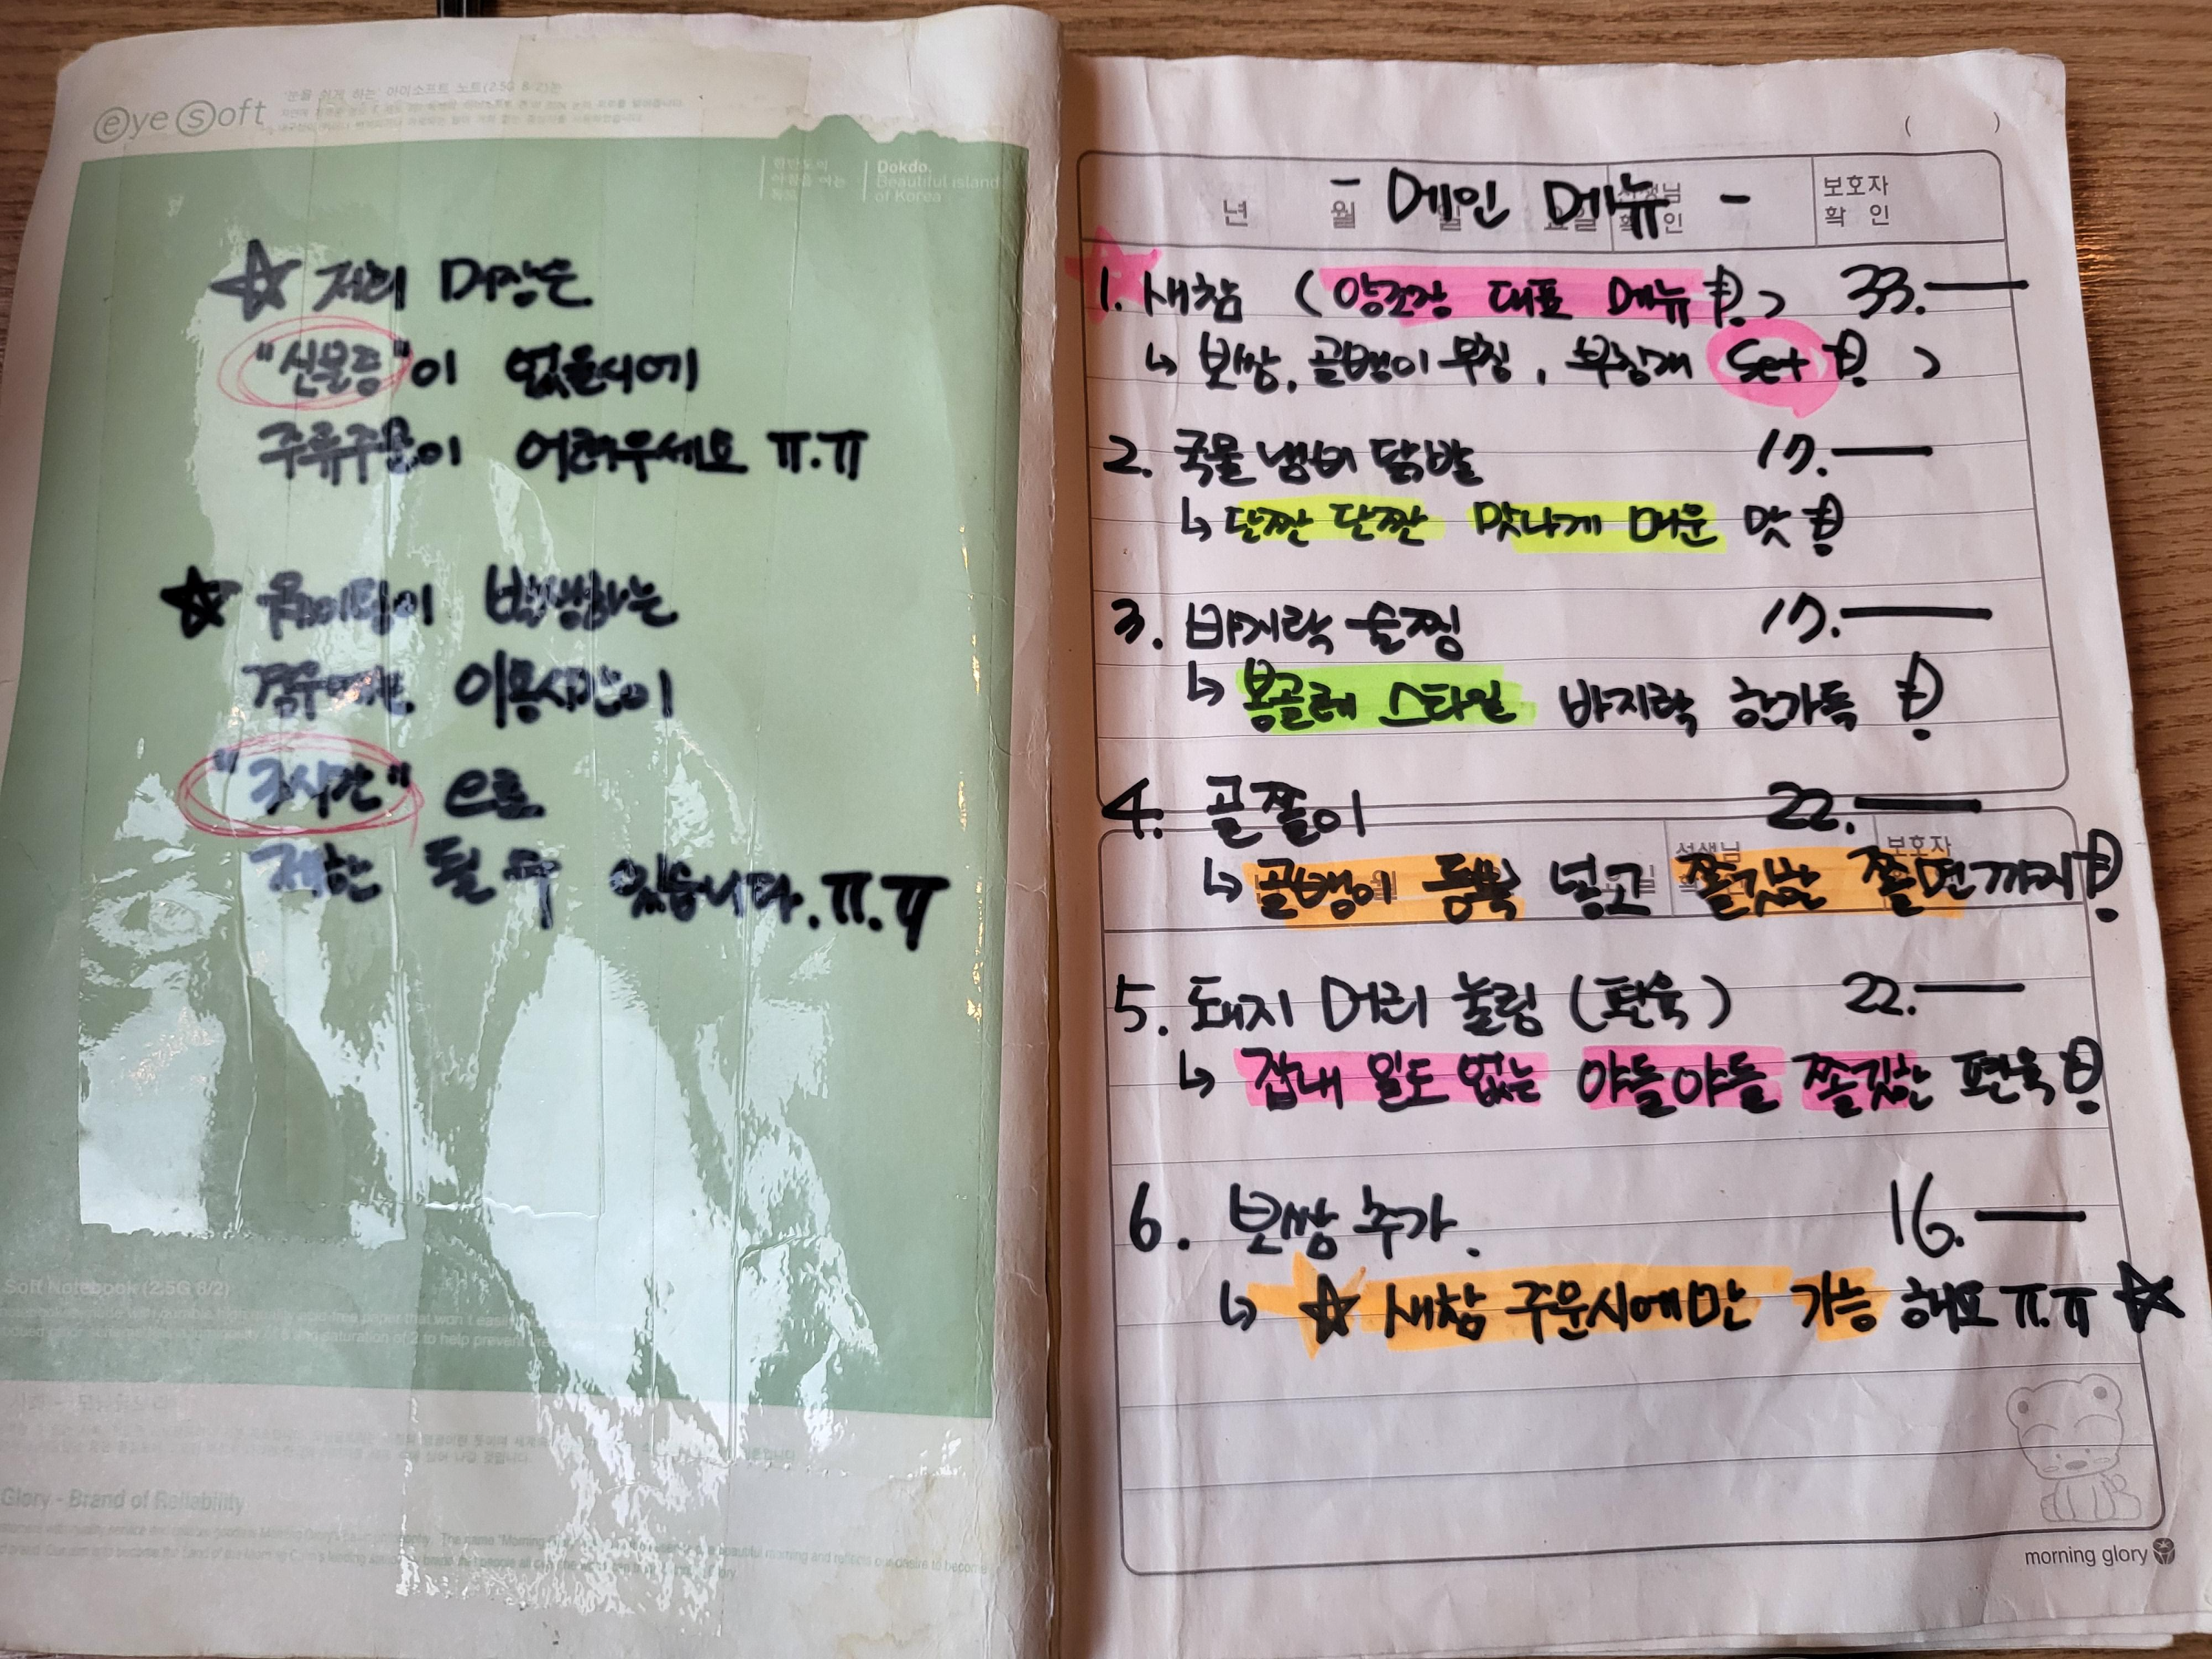 eye soft
'눈을 쉬게 하는' 아이소프트 노트(2.5G 8/2)는
한반도의
아침을 여는
독도
Dokdo.
Beautiful island
of Korea
☆ 저희 매장은
"신분증"이 없을시에
주류주문이 어려우세요 ㅠ.ㅠ
☆ 웨이팅이 발생하는
경우에는 이용시간이
"2시간"으로
제한 될 수 있습니다.ㅠ.ㅠ
Soft Notebook (2.5G 8/2)
Glory - Brand of Reliability
( )
년 월 일 요일 선생님 확인 보호자 확인
- 메인 메뉴 -
1. 새참 (양조장 대표 메뉴!) 33.—
↳ 보쌈, 골뱅이 무침, 부침개 Set!)
2. 국물 냄비 닭발 17.—
↳ 단짠 단짠 맛나게 매운 맛!
3. 바지락 술찜 17.—
↳ 봉골레 스타일 바지락 한가득!
4. 골쫄이 22.—
선생님 보호자
↳ 골뱅이 듬뿍 넣고 쫄깃한 쫄면까지!
5. 돼지 머리 눌림 (편육) 22.—
↳ 잡내 일도 없는 야들야들 쫄깃한 편육!
6. 보쌈 추가. 16.—
↳ ☆ 새참 주문시에만 가능 해요 ㅠ.ㅠ ☆
morning glory